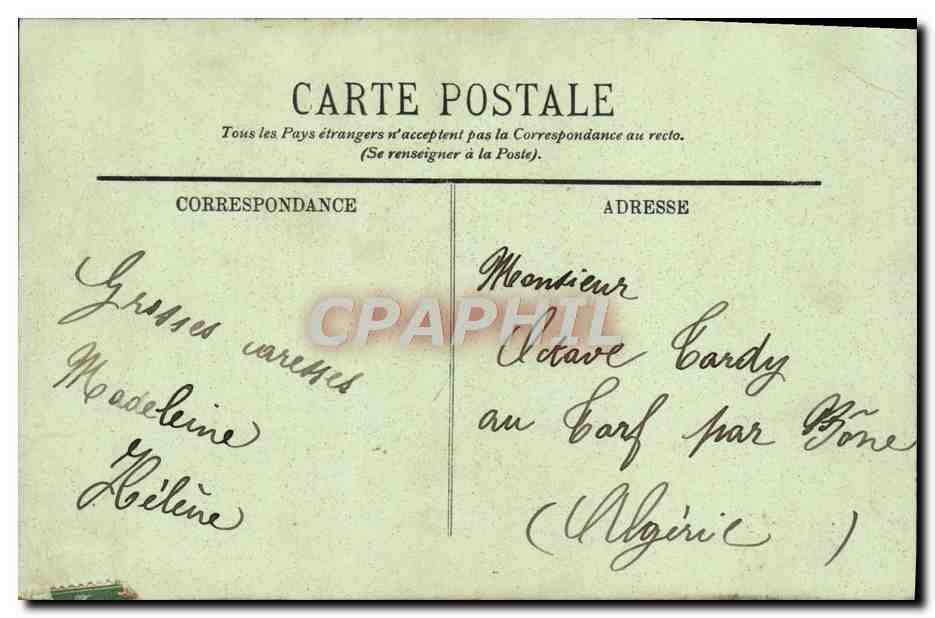 CARTE POSTALE
Tous les Pays étrangers n'acceptent pas la Correspondance au recto.
(Se renseigner à la Poste).
CORRESPONDANCE
Grosses caresses
Madeleine
Hélène
ADRESSE
Monsieur
Octave Tardy
au Tarf par Bône
(Algérie)
CPAPHIL